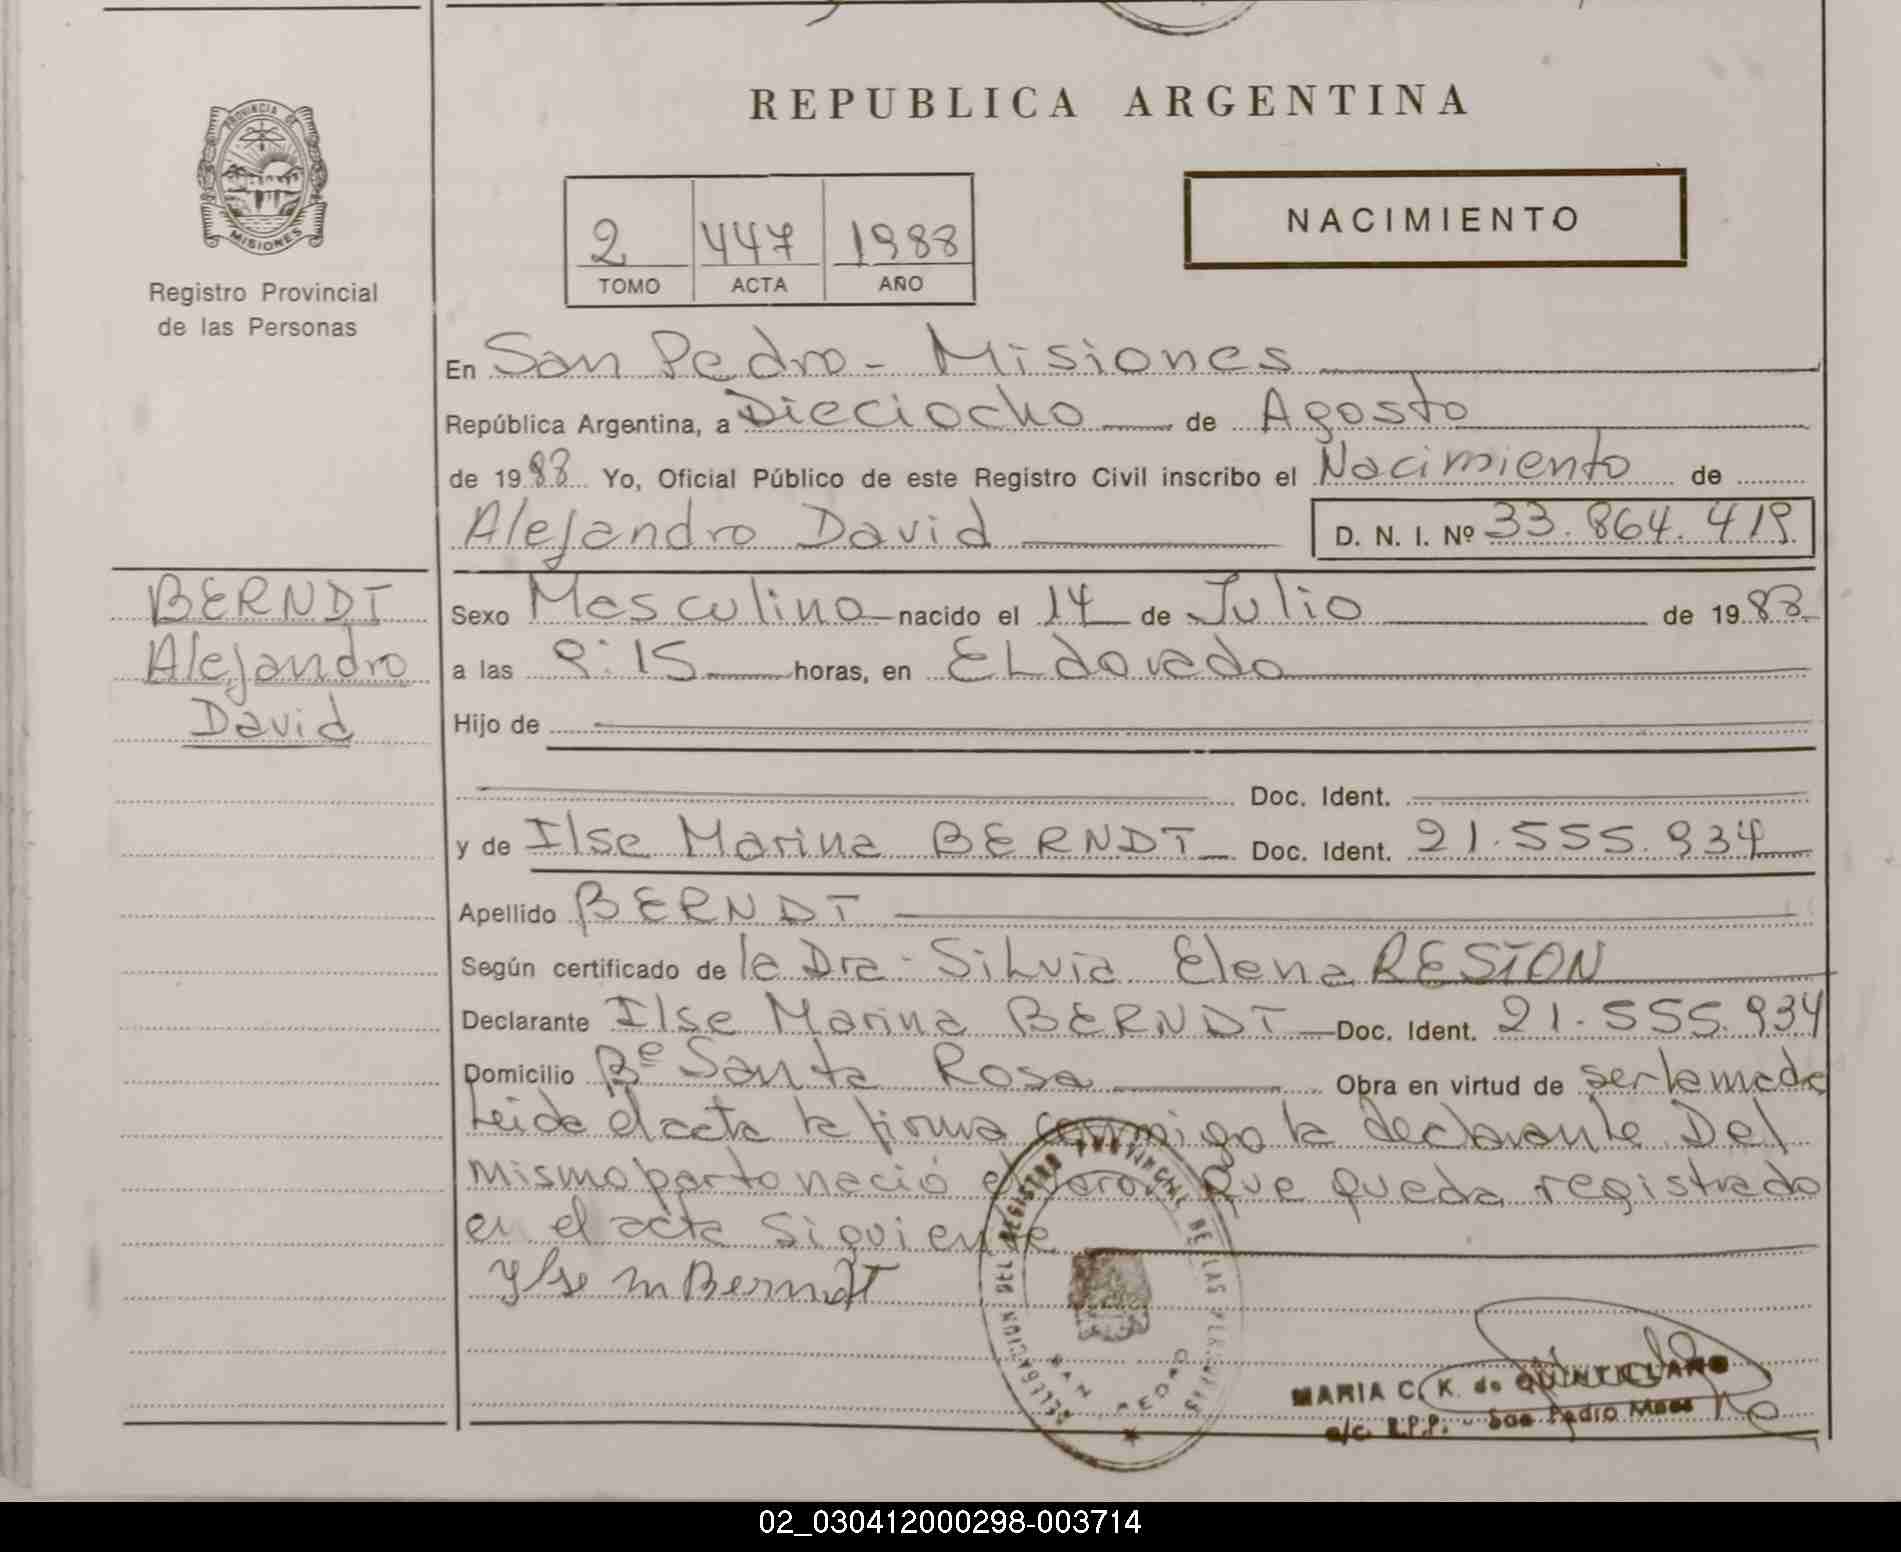 REPUBLICA ARGENTINA
PROVINCIA DE
MISIONES
Registro Provincial
de las Personas
2 447 1988
TOMO ACTA AÑO
NACIMIENTO
En San Pedro - Misiones
República Argentina, a Dieciocho de Agosto
de 1988 Yo, Oficial Público de este Registro Civil inscribo el Nacimiento de
Alejandro David D. N. I. Nº 33.864.419
BERNDT
Alejandro
David
Sexo Masculino nacido el 14 de Julio de 1988
a las 9:15 horas, en ELdorado
Hijo de
Doc. Ident.
y de Ilse Marina BERNDT Doc. Ident. 21.555.934
Apellido BERNDT
Según certificado de la Dra. Silvia Elena RESTON
Declarante Ilse Marina BERNDT Doc. Ident. 21.555.934
Domicilio Bº Santa Rosa Obra en virtud de ser la madre
Leida el acta la firma conmigo la declarante Del
mismo parto nació el varon Que queda registrado
en el acta siguiente
Ylse m Berndt
DELEGACION DEL REGISTRO PROVINCIAL DE LAS PERSONAS
SAN PEDRO
MARIA C. K. de QUINTILIANO
a/c. R.P.P. - San Pedro Mnes
02_030412000298-003714